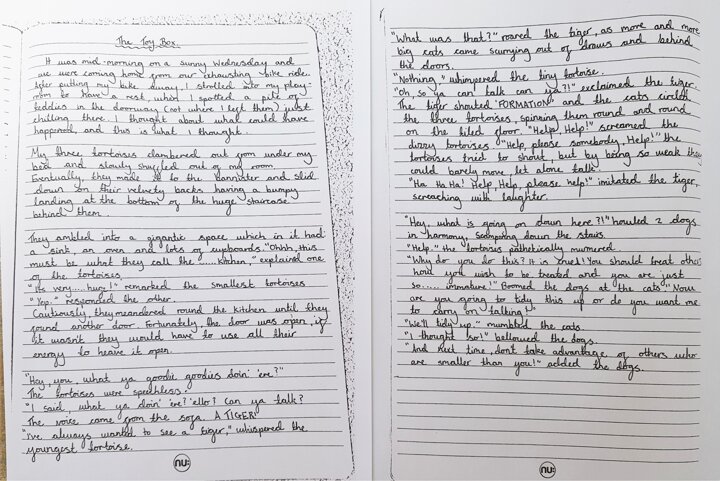 The Toy Box.
It was mid-morning on a sunny Wednesday and
we were coming home from our exhausting bike ride.
After putting my bike away, I strolled into my play-
room to have a rest, when I spotted a pile of
teddies in the doorway (not where I left them) just
chilling there. I thought about what could have
happened, and this is what I thought.
My three tortoises clambered out from under my
bed and slowly shuffled out of my room.
Eventually, they made it to the bannister and slid
down on their velvety backs having a bumpy
landing at the bottom of the huge staircase
behind them.
They ambled into a gigantic space which in it had
a sink, an oven and lots of cupboards. "Ohhh, this
must be what they call the ......kitchen," explained one
of the tortoises.
"It's very.....huge!" remarked the smallest tortoises
"Yep." responded the other.
Cautiously, they meandered round the kitchen until they
found another door. Fortunately, the door was open, if
it wasn't they would have to use all their
energy to heave it open.
"Hey, you, what ya goodie goodies doin' 'ere?"
The tortoises were speechless.
"I said, what ya doin' 'ere? 'ello? Can ya talk?
The voice came from the sofa. A TIGER!
"I've always wanted to see a tiger," whispered the
youngest tortoise.
nu:
"What was that?" roared the tiger, as more and more
big cats came scurrying out of draws and behind
the doors.
"Nothing," whimpered the tiny tortoise.
"Oh, so ya can talk can ya?!" exclaimed the tiger.
The tiger shouted "FORMATION" and the cats circled
the three tortoises, spinning them round and round
on the tiled floor. "Help, Help!" screamed the
dizzy tortoises "Help, please somebody, Help!" the
tortoises tried to shout, but by being so weak they
could barely move let alone talk.
"Ha Ha Ha! Help, Help, please help!" imitated the tiger,
screaching with laughter.
"Hey, what is going on down here?!" howled 2 dogs
in harmony, scampering down the stairs.
"Help." the tortoises pathetically murmered.
"Why do you do this? It is cruel! You should treat others
how you wish to be treated and you are just
so...... immature!" Boomed the dogs at the cats. "Now
are you going to tidy this up or do you want me
to carry on talking"
"We'll tidy up." mumbled the cats.
"I thought so!" bellowed the dogs.
"And next time, dont take advantage of others who
are smaller than you!" added the dogs.
nu: